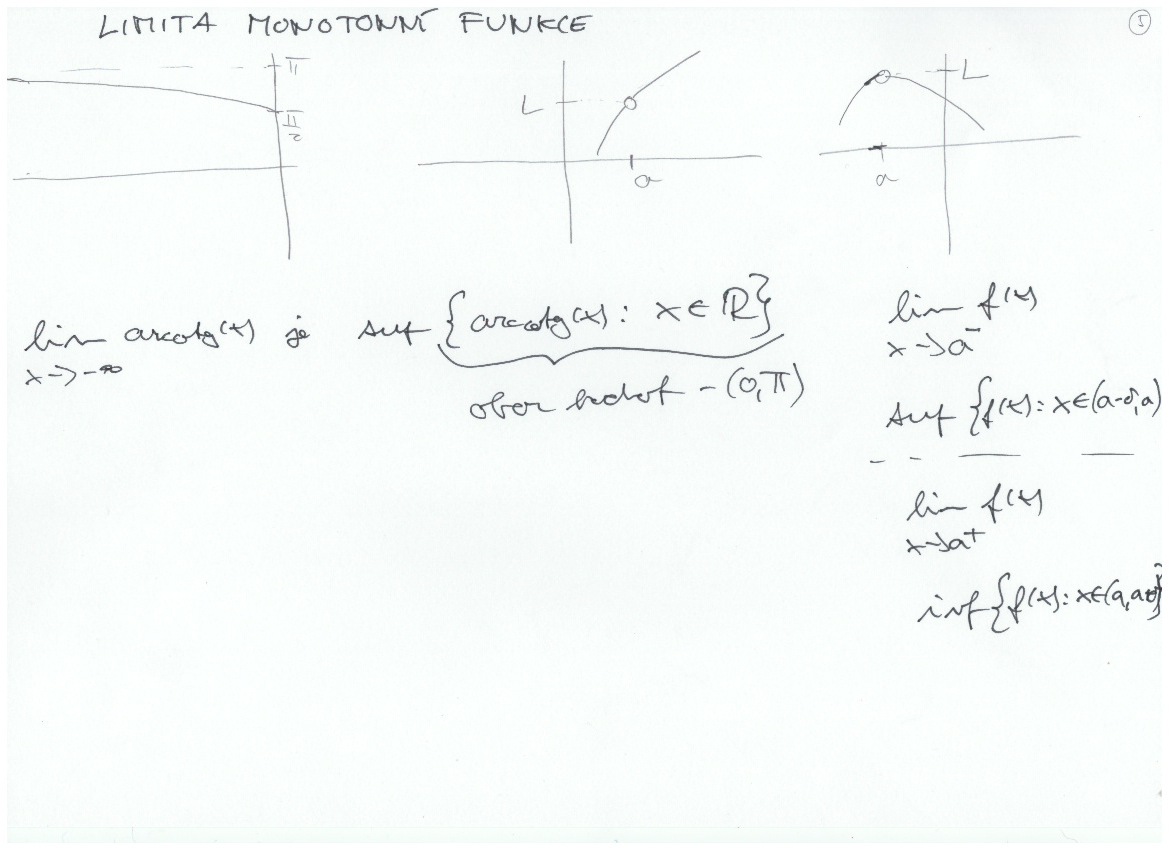 LIMITA MONOTONNÍ FUNKCE
5
π
π/2
L
a
L
a
lim arccotg(x) je sup {arccotg(x): x ∈ ℝ}
x→-∞
obor hodnot - (0,π)
lim f(x)
x→a⁻
sup {f(x): x∈(a-δ,a)
lim f(x)
x→a⁺
inf {f(x): x∈(a,a+δ)}